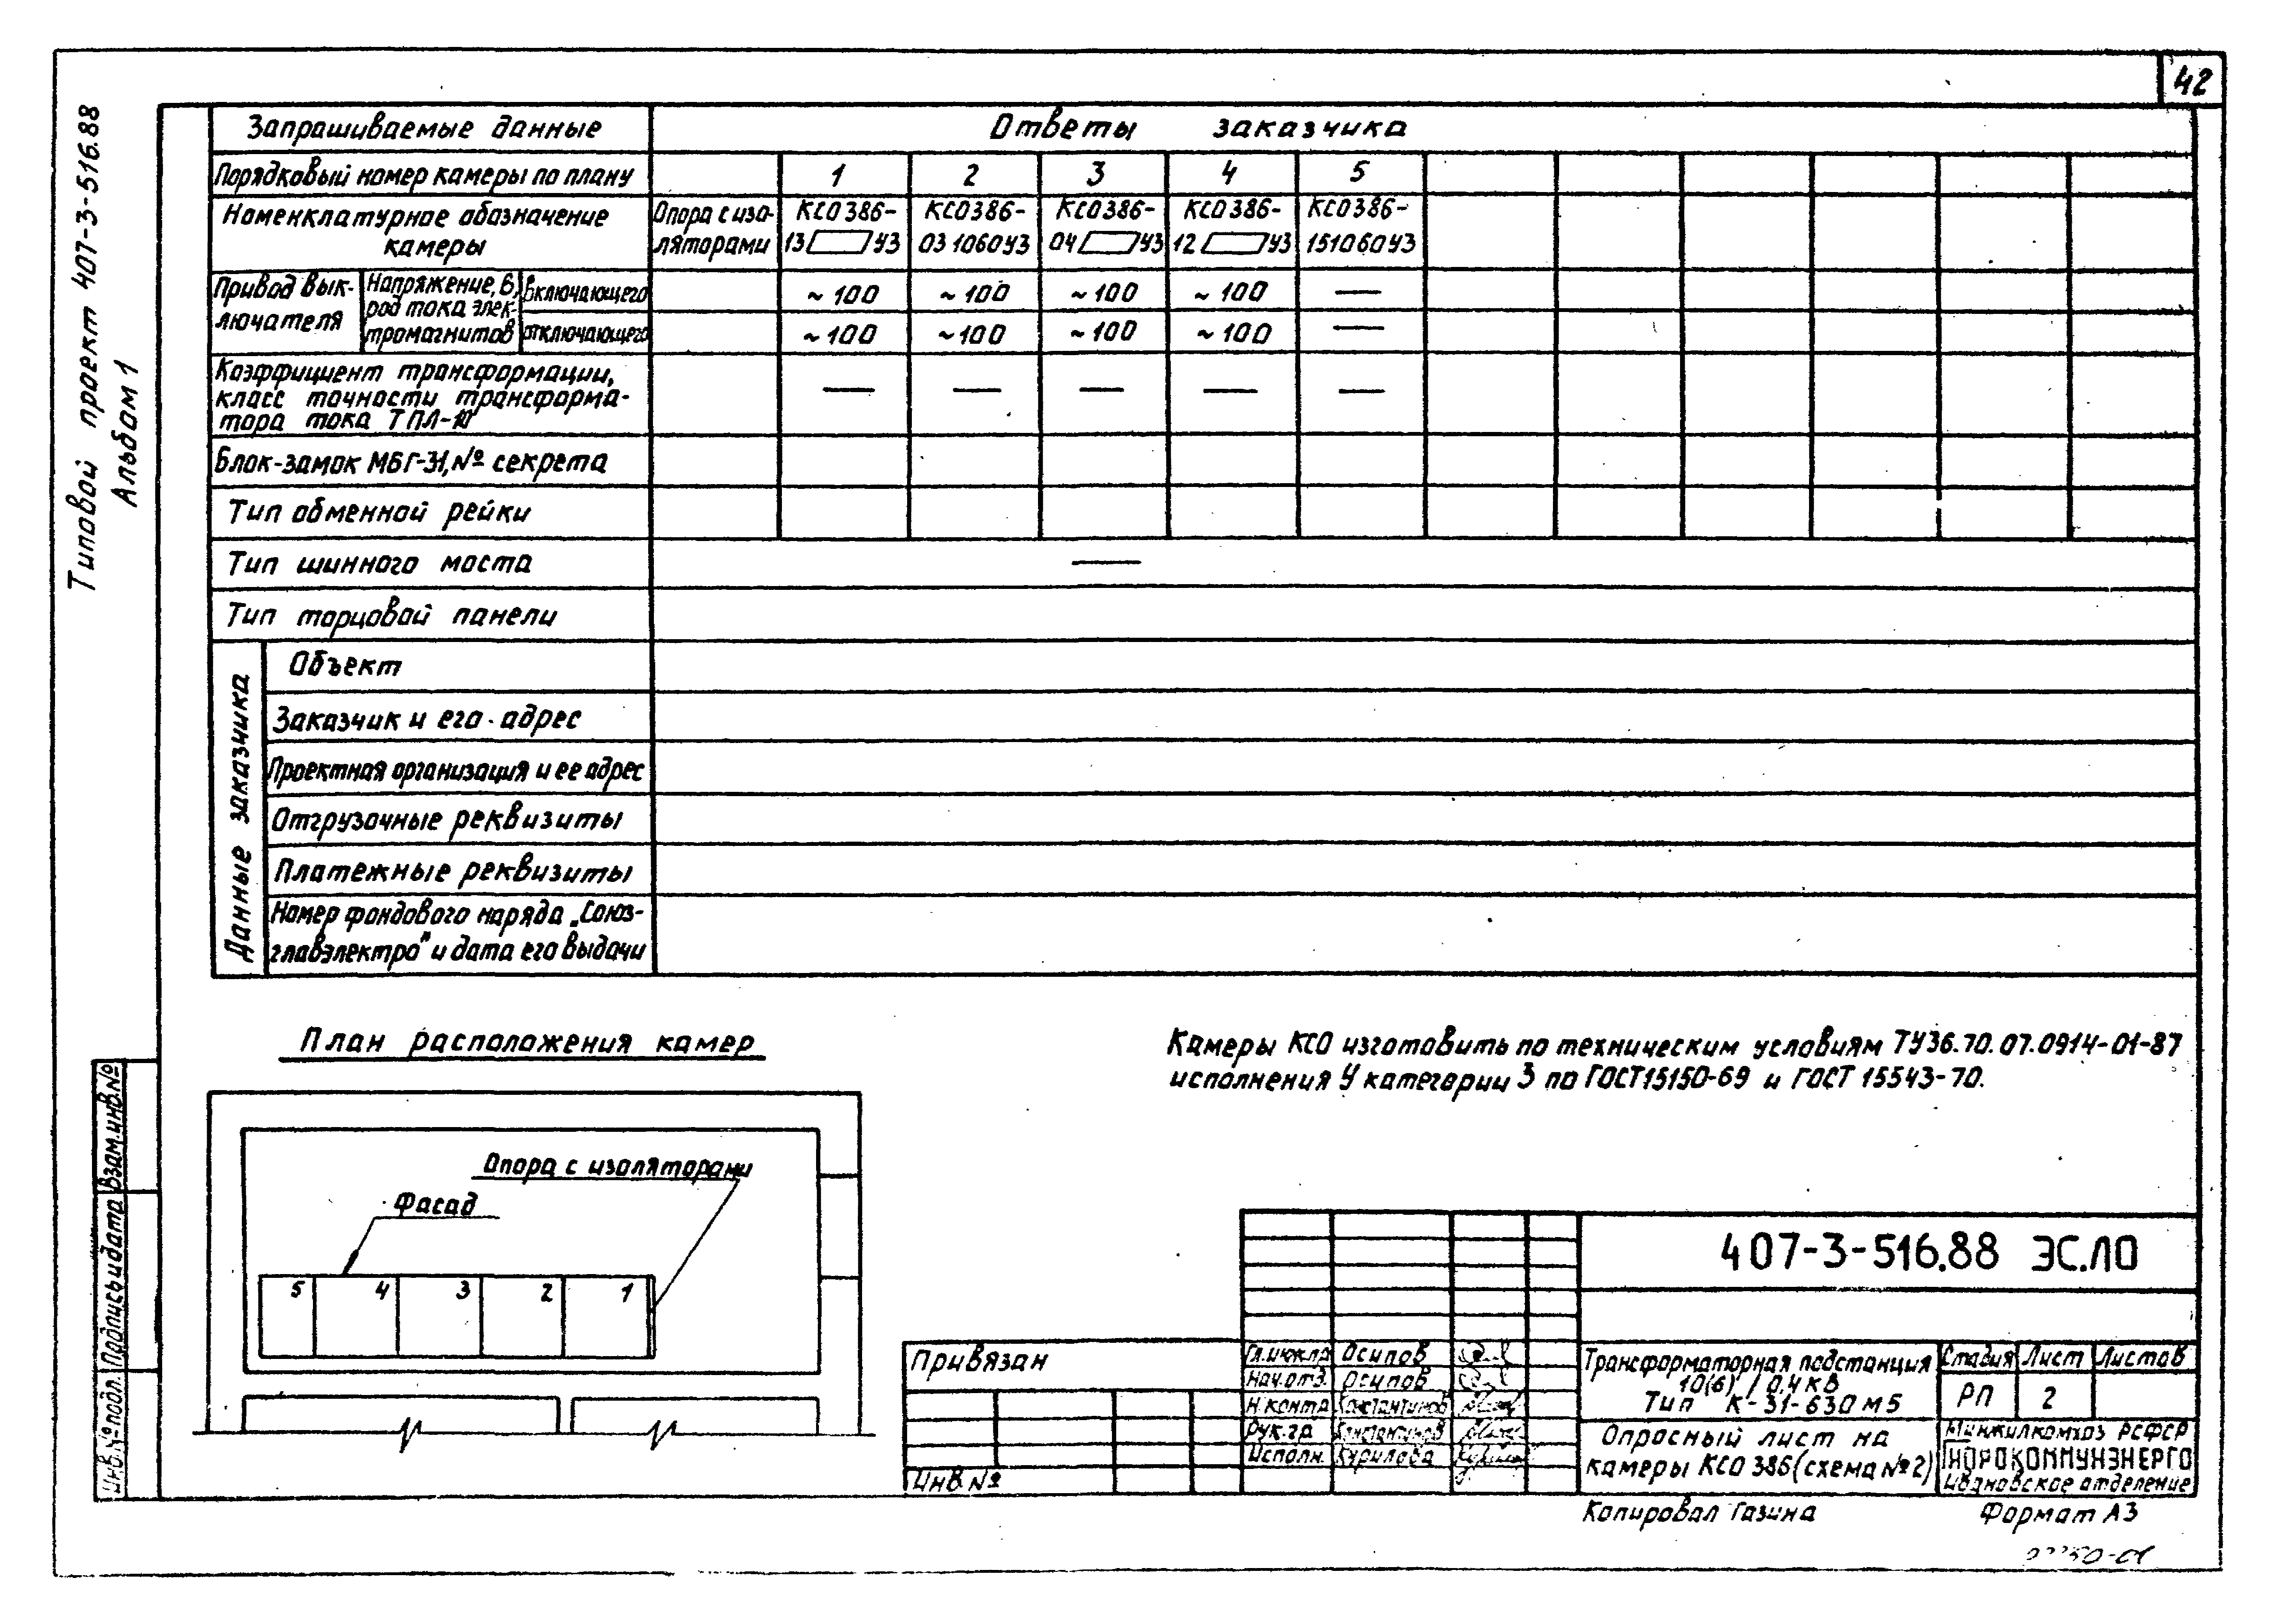 42
Типовой проект 407-3-516.88
Альбом 1
Запрашиваемые данные
Ответы заказчика
Порядковый номер камеры по плану
1 2 3 4 5
Номенклатурное обозначение
камеры
Опора с изо-
ляторами
КСО386-
13 У3
КСО386-
03 1060У3
КСО386-
04 У3
КСО386-
12 У3
КСО386-
151060У3
Привод вык-
лючателя
Напряжение, В,
род тока элек-
тромагнитов
включающего
~100 ~100 ~100 ~100 —
отключающего
~100 ~100 ~100 ~100 —
Коэффициент трансформации,
класс точности трансформа-
тора тока ТПЛ-10
— — — — —
Блок-замок МБГ-31, № секрета
Тип обменной рейки
Тип шинного моста
—
Тип торцовой панели
Данные заказчика
Объект
Заказчик и его адрес
Проектная организация и ее адрес
Отгрузочные реквизиты
Платежные реквизиты
Номер фондового наряда „Союз-
главэлектро" и дата его выдачи
План расположения камер
Опора с изоляторами
Фасад
5 4 3 2 1
Камеры КСО изготовить по техническим условиям ТУ36.70.07.0914-01-87
исполнения У категории 3 по ГОСТ15150-69 и ГОСТ 15543-70.
Взам.инв.№
Подпись и дата
Инв.№ подл.
Привязан
Инв №
407-3-516.88 ЭС.ЛО
Нач.отд. Осипов
Н.контр Константинов
Рук.гр Константинов
Исполн. Курилова
Осипов
Трансформаторная подстанция
10(6) / 0,4 кВ
Тип К-31-630 М5
Стадия Лист Листов
РП 2
Опросный лист на
камеры КСО 386 (схема №2)
Минжилкомхоз РСФСР
Ивановское отделение
Копировал Газина
Формат А3